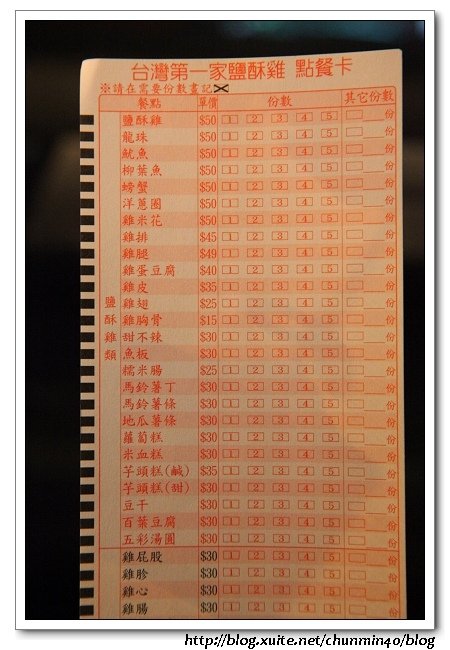 台灣第一家鹽酥雞 點餐卡
※請在需要份數畫記✕
餐點 單價 份數 其它份數
鹽酥雞類
鹽酥雞 $50 1 2 3 4 5 份
龍珠 $50 1 2 3 4 5 份
魷魚 $50 1 2 3 4 5 份
柳葉魚 $50 1 2 3 4 5 份
螃蟹 $50 1 2 3 4 5 份
洋蔥圈 $50 1 2 3 4 5 份
雞米花 $50 1 2 3 4 5 份
雞排 $45 1 2 3 4 5 份
雞腿 $49 1 2 3 4 5 份
雞蛋豆腐 $40 1 2 3 4 5 份
雞皮 $35 1 2 3 4 5 份
雞翅 $25 1 2 3 4 5 份
雞胸骨 $15 1 2 3 4 5 份
甜不辣 $30 1 2 3 4 5 份
魚板 $30 1 2 3 4 5 份
糯米腸 $25 1 2 3 4 5 份
馬鈴薯丁 $30 1 2 3 4 5 份
馬鈴薯條 $30 1 2 3 4 5 份
地瓜薯條 $30 1 2 3 4 5 份
蘿蔔糕 $30 1 2 3 4 5 份
米血糕 $30 1 2 3 4 5 份
芋頭糕(鹹) $35 1 2 3 4 5 份
芋頭糕(甜) $30 1 2 3 4 5 份
豆干 $30 1 2 3 4 5 份
百葉豆腐 $30 1 2 3 4 5 份
五彩湯圓 $30 1 2 3 4 5 份
雞屁股 $30 1 2 3 4 5 份
雞胗 $30 1 2 3 4 5 份
雞心 $30 1 2 3 4 5 份
雞腸 $30 1 2 3 4 5 份
http://blog.xuite.net/chunmin40/blog